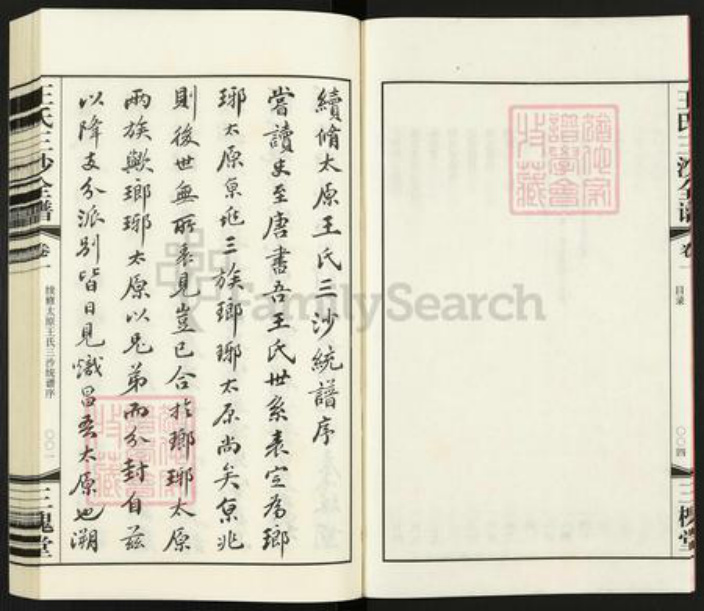 王氏三沙全譜
卷一
目录
〇〇四
三槐堂
續脩太原王氏三沙統譜序
嘗讀史至唐書吾王氏世系表定為瑯
琊太原京兆三族瑯琊太原尚矣京兆
則後世無所表見豈已合於瑯琊太原
兩族歟瑯琊太原以兄弟而分封自茲
以降支分派別皆日見熾昌吾太原也溯
王氏三沙全譜
卷一
续修太原王氏三沙统谱序
〇〇一
三槐堂
FamilySearch